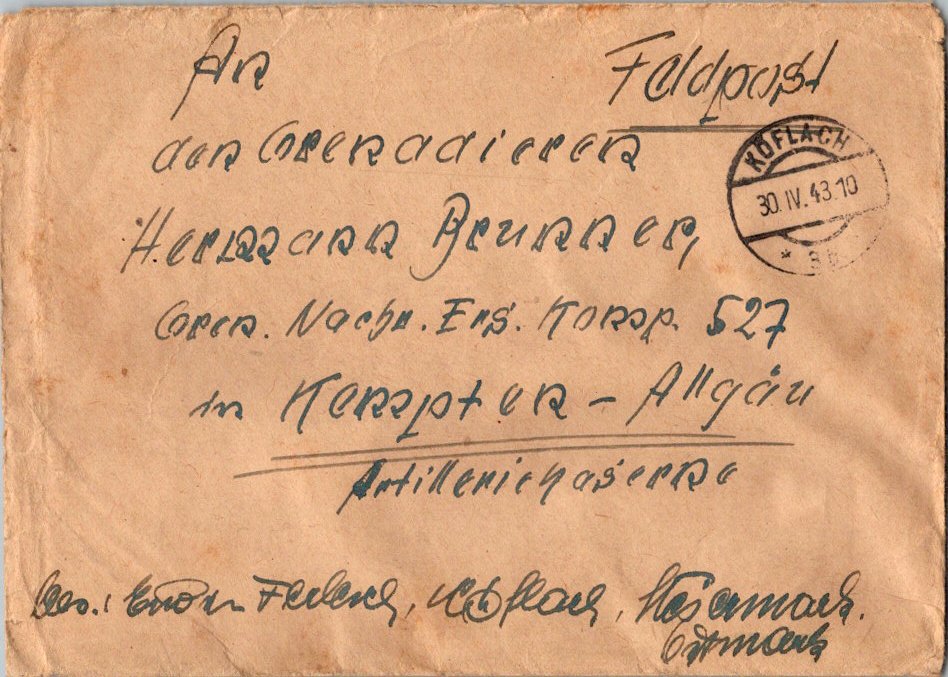 An
Feldpost
den Grenadieren
Hermann Brunner,
Gren. Nachr. Ers. Komp. 527
in Kempten - Allgäu
Artilleriekaserne
KÖFLACH
30. IV. 43. 10
* a
Köflach, Steiermark.
Ostmark